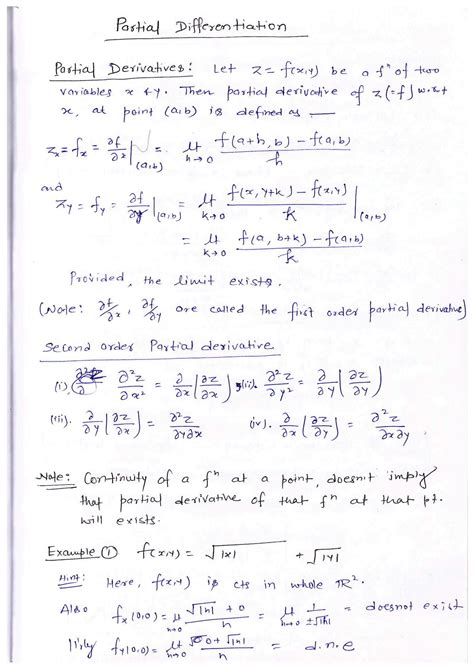 Partial Differentiation
Partial Derivatives: Let z = f(x,y) be a fⁿ of two
variables x & y. Then partial derivative of z (=f) w.r.t
x, at point (a,b) is defined as —
z_x = f_x = ∂f/∂x |_(a,b) = lt_{h→0} (f(a+h, b) − f(a,b))/h
and
z_y = f_y = ∂f/∂y |_(a,b) = lt_{k→0} (f(x, y+k) − f(x,y))/k |_(a,b)
= lt_{k→0} (f(a, b+k) − f(a,b))/k
Provided, the limit exists.
(Note: ∂f/∂x, ∂f/∂y are called the first order partial derivative)
Second order Partial derivative
(i). ∂²z/∂x² = ∂/∂x (∂z/∂x), (ii). ∂²z/∂y² = ∂/∂y (∂z/∂y)
(iii). ∂/∂y (∂z/∂x) = ∂²z/∂y∂x (iv). ∂/∂x (∂z/∂y) = ∂²z/∂x∂y
Note: Continuity of a fⁿ at a point, doesn't imply
that partial derivative of that fⁿ at that pt.
will exists.
Example ① f(x,y) = √|x| + √|y|
Hint: Here, f(x,y) is cts in whole ℝ².
Also f_x(0,0) = lt_{h→0} (√|h| + 0)/h = lt_{h→0} 1/±√|h| = doesnot exist
|||ly f_y(0,0) = lt_{h→0} (0 + √|h|)/h = d.n.e